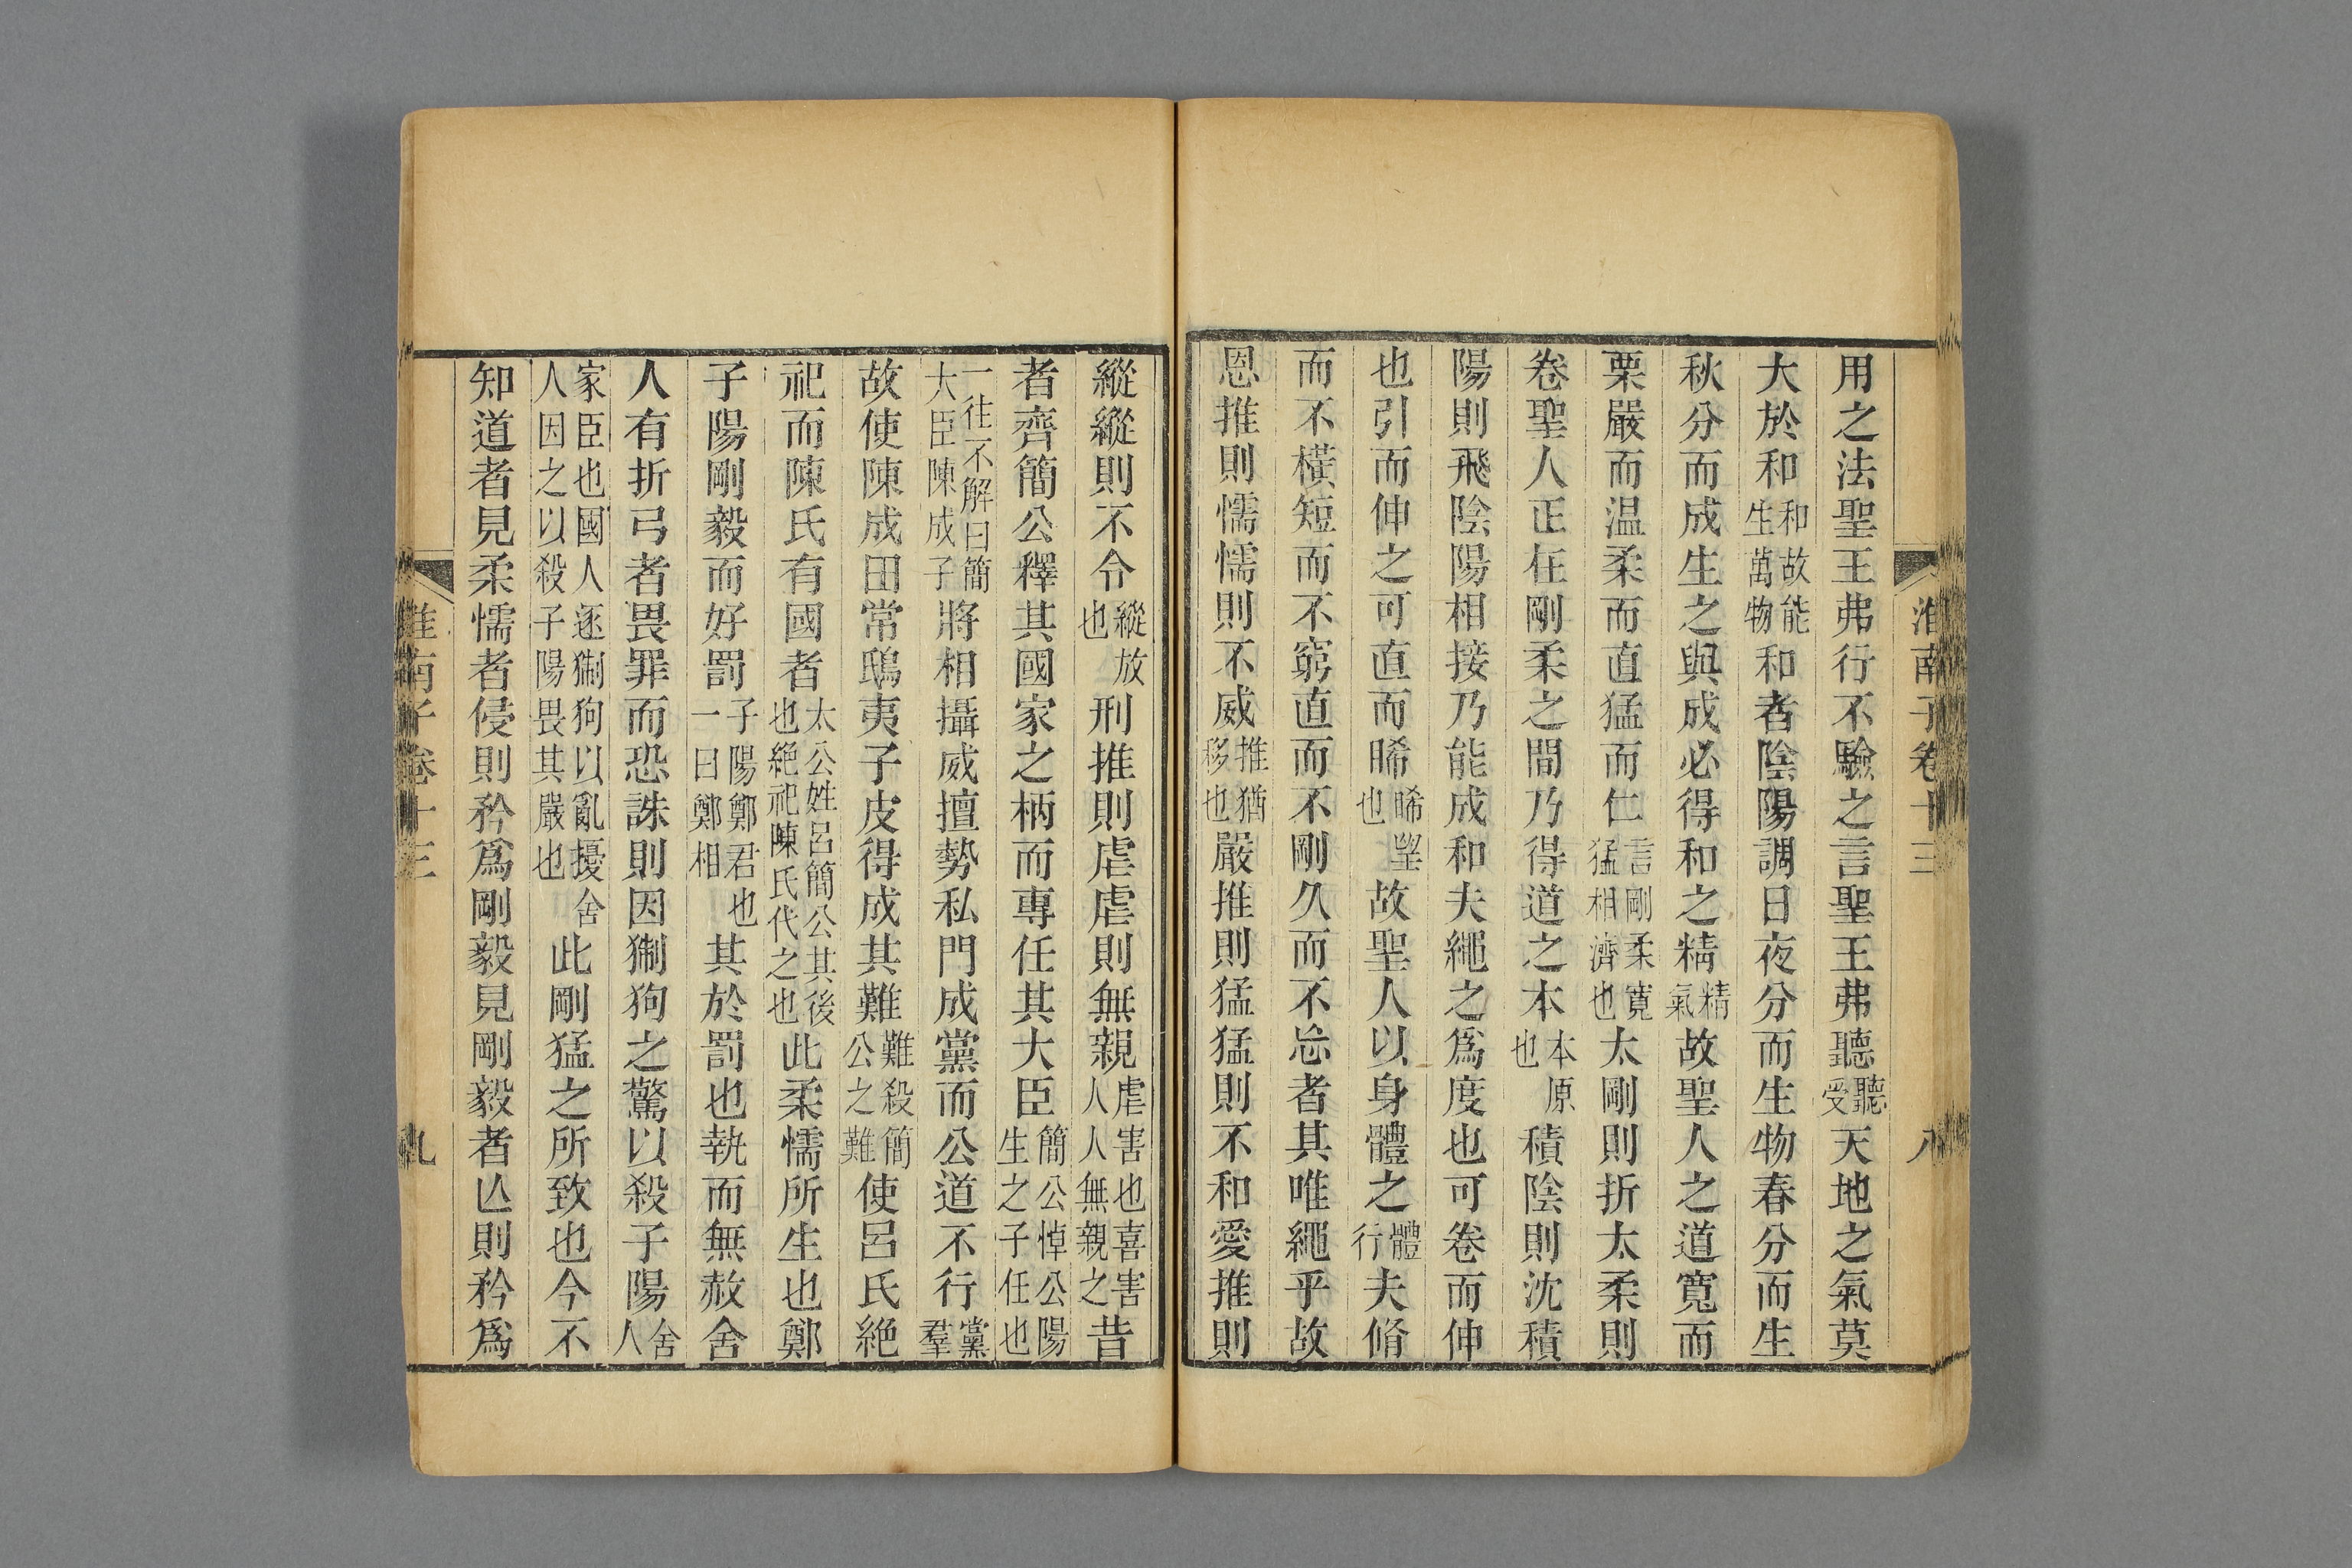 淮南子卷十三 八
用之法聖王弗行不驗之言聖王弗聽聽受天地之氣莫
大於和和故能生萬物和者陰陽調日夜分而生物春分而生
秋分而成生之與成必得和之精精氣故聖人之道寬而
栗嚴而温柔而直猛而仁言剛柔寬猛相濟也太剛則折太柔則
卷聖人正在剛柔之間乃得道之本本原也積陰則沈積
陽則飛陰陽相接乃能成和夫繩之爲度也可卷而伸
也引而伸之可直而睎睎望也故聖人以身體之體行夫脩
而不橫短而不窮直而不剛久而不忘者其唯繩乎故
恩推則懦懦則不威推猶移也嚴推則猛猛則不和愛推則
縱縱則不令縱放也刑推則虐虐則無親虐害也喜害人人無親之昔
者齊簡公釋其國家之柄而專任其大臣簡公悼公陽生之子任也
一往不解曰簡大臣陳成子將相攝威擅勢私門成黨而公道不行黨羣
故使陳成田常鴟夷子皮得成其難難殺簡公之難使呂氏絶
祀而陳氏有國者太公姓呂簡公其後也絶祀陳氏代之也此柔懦所生也鄭
子陽剛毅而好罰子陽鄭君也一曰鄭相其於罰也執而無赦舍
人有折弓者畏罪而恐誅則因猘狗之驚以殺子陽舍人
家臣也國人逐猘狗以亂擾舍人因之以殺子陽畏其嚴也此剛猛之所致也今不
知道者見柔懦者侵則矜爲剛毅見剛毅者亾則矜爲
淮南子卷十三 九